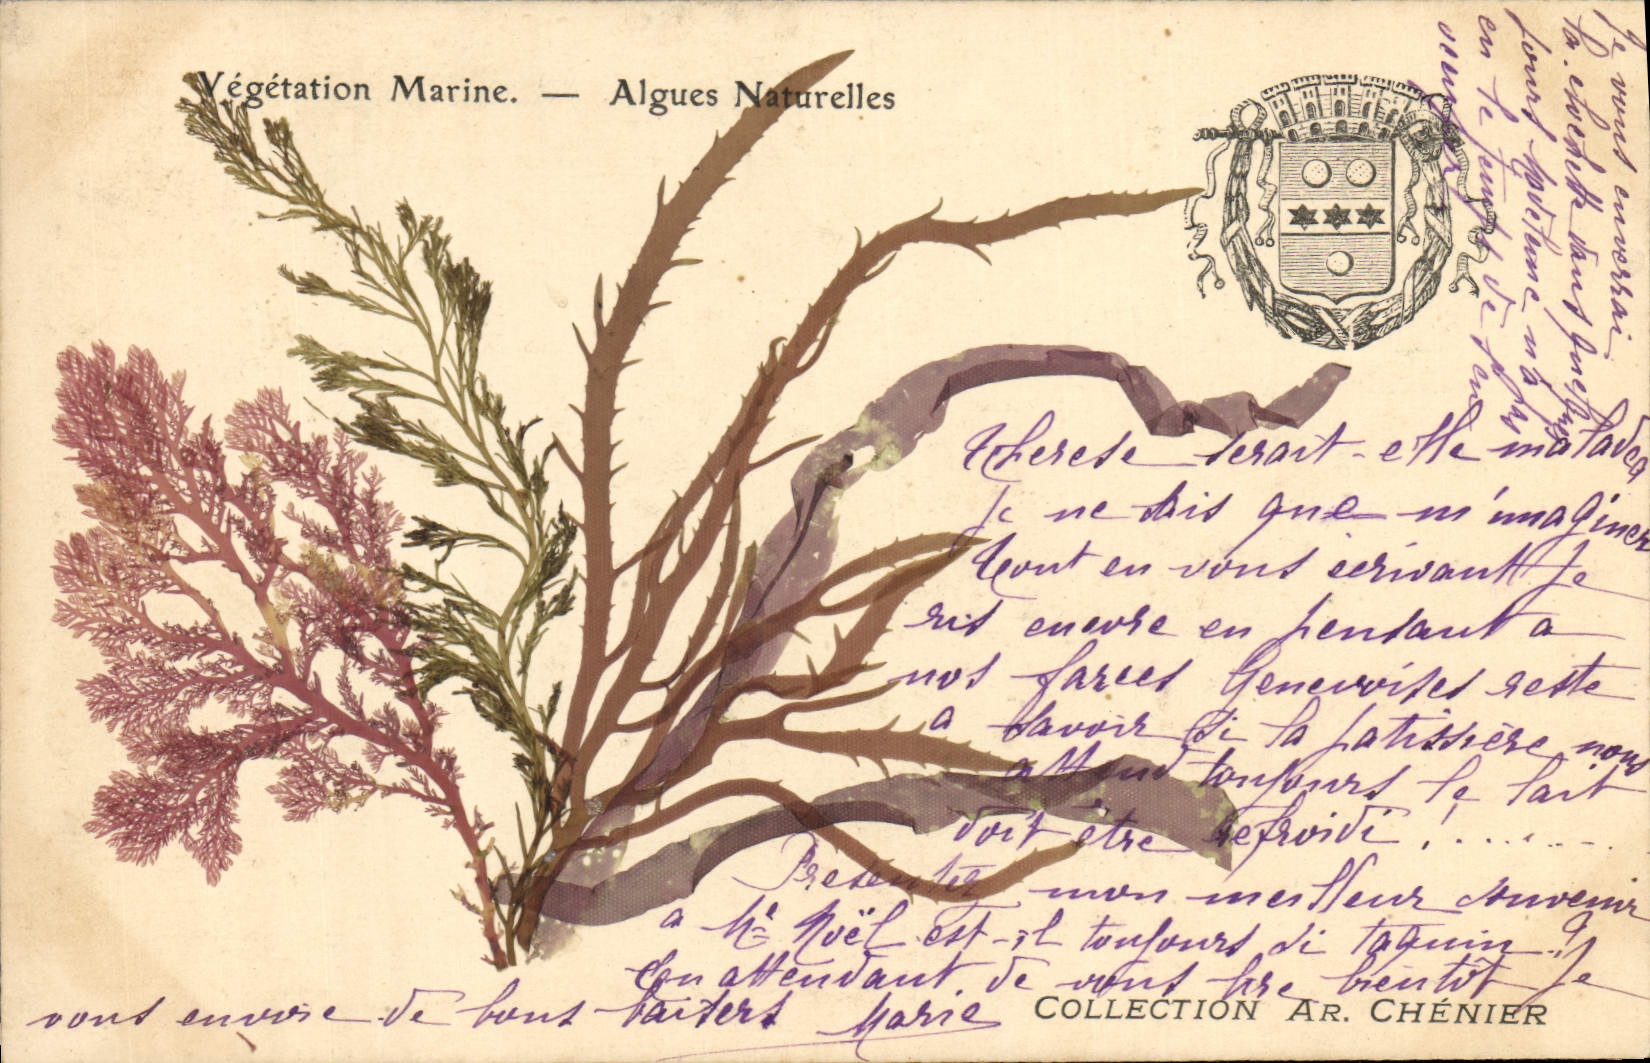 Végétation Marine. — Algues Naturelles
Je vous enverrai
la chechette dans quelques
jours Madeleine n'a pas
eu le temps de s'en
occuper
Therese serait-elle malade
je ne sais que m'imaginer
Tout en vous écrivant Je
ris encore en pensant a
nos farces Genevoises reste
a savoir si la patissière nous
attend toujours le lait
doit être refroidi ! . . . . . . . .
Presentez mon meilleur souvenir
a Mr Noël est-il toujours si taquin ? Je
En attendant de vous lire bientôt Je
vous envoie de bons baisers Marie
COLLECTION AR. CHÉNIER